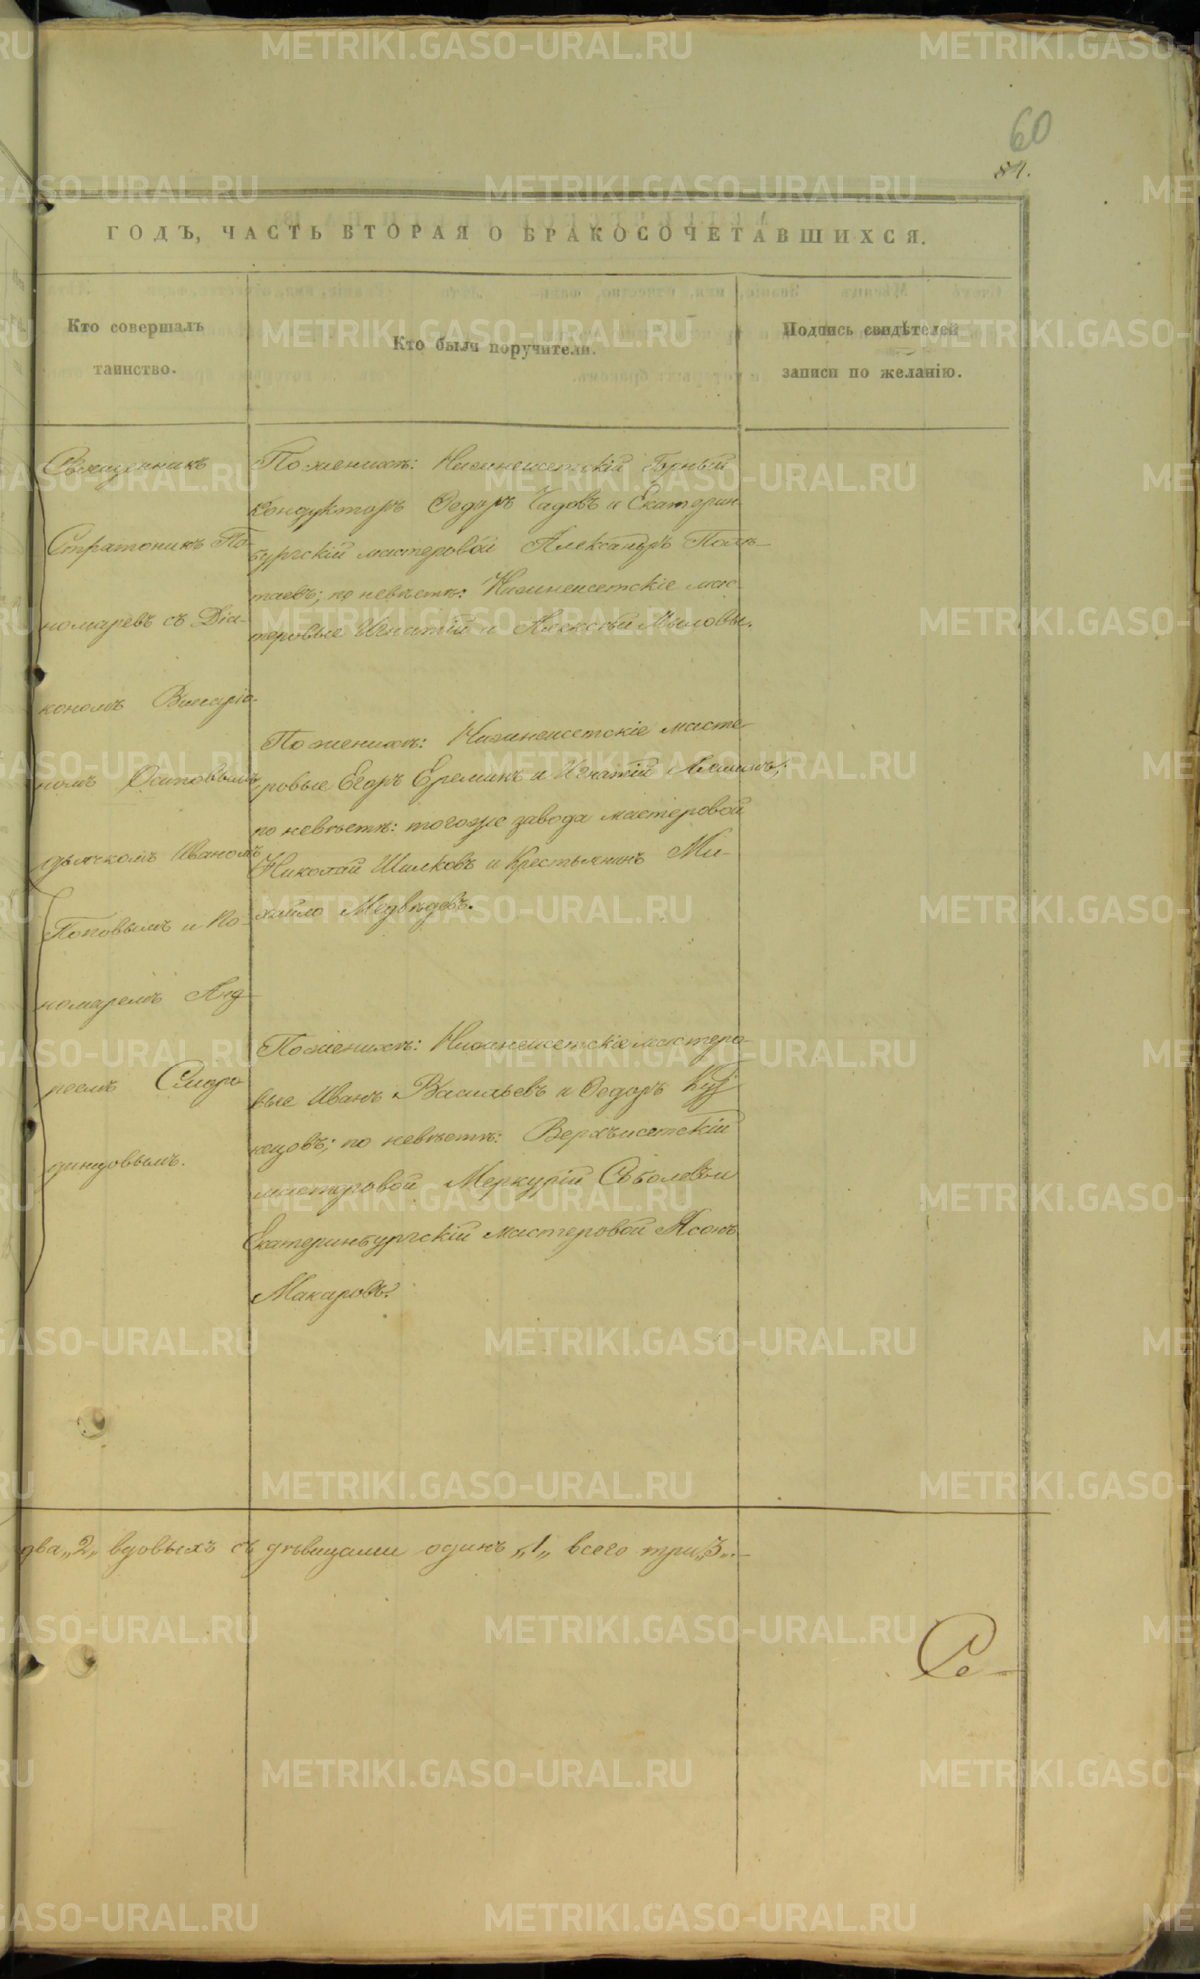 60
ГОДЪ, ЧАСТЬ ВТОРАЯ О БРАКОСОЧЕТАВШИХСЯ.
Кто совершалъ
таинство.
Кто были поручители.
Подпись свидѣтелей
записи по желанію.
Священникъ
Стратоникъ По-
номаревъ съ Діа-
кономъ Виссаріо-
номъ Осиповымъ
дьячкомъ Иваномъ
Поповымъ и По-
номаремъ Анд-
реемъ
По женихѣ: Нижнеисетскій Горный
Кондукторъ Ѳедоръ Чадовъ и Екатерин-
бургскій мастеровой Александръ
по невѣстѣ: Нижнеисетскіе мас-
теровые Игнатій и Алексѣй Мыловы.
По женихѣ: Нижнеисетскіе масте-
ровые Егоръ Ереминъ и Игнатій
по невѣстѣ: тогоже завода мастеровой
Николай Шилковъ и Крестьянинъ Ми-
хайло Медвѣдевъ.
По женихѣ: Нижнеисетскіе мастеро-
вые Иванъ Васильевъ и Ѳедоръ Куз-
нецовъ; по невѣстѣ: Верхъисетскій
мастеровой Меркурій Соболевъ и
Екатеринбургскій мастеровой
Макаровъ.
два „2„ вдовыхъ съ дѣвицами одинъ „1„ всего три „3„.
METRIKI.GASO-URAL.RU